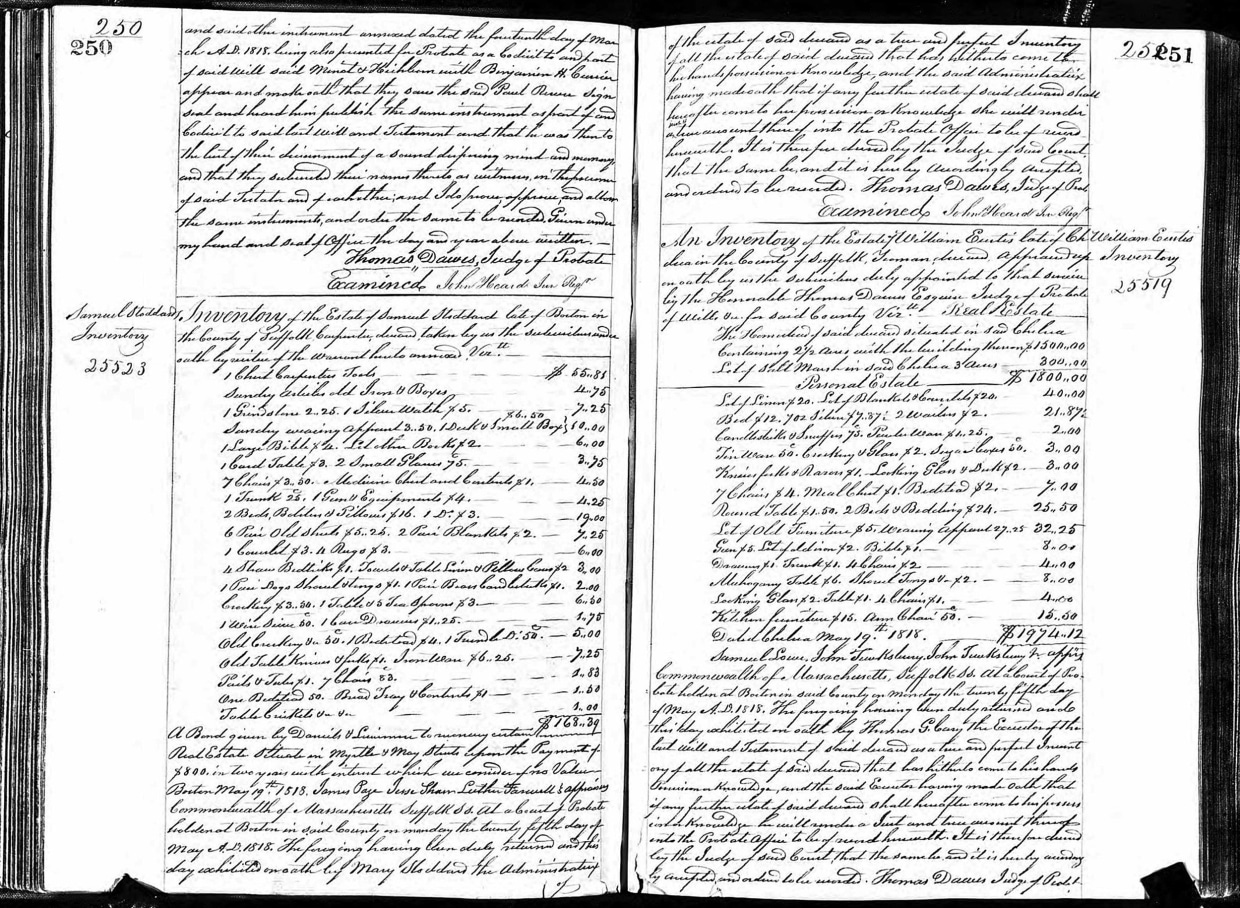 250
250
and said other instrument annexed dated the fourteenth day of Mar
ch A.D. 1818. being also presented for Probate as a Codicil to and part
of said Will said Minot & Heichborn with Benjamin H. Currier
appear and make oath that they saw the said Paul Revere sign
seal and heard him publish the same instrument as part of and
Codicil to said last Will and Testament and that he was then to
the best of their discernment of a sound disposing mind and memory
and that they subscribed their names thereto as witnesses, in the presence
of said Testator and of each other; and I do prove, approve, and allow
the same instrument, and order the same to be recorded. Given under
my hand and seal of Office the day and year above written.
Thomas Dawes, Judge of Probate
Examined John Heard Jun Regr
Samuel Stoddard
Inventory
25523
Inventory of the Estate of Samuel Stoddard late of Boston in
the County of Suffolk Carpenter, deceased, taken by us the subscribers under
oath by virtue of the Warrant hereto annexed Vizt.
1 Chest Carpenters Tools $ 55..81
Sundry articles old Iron & Boxes 4..75
1 Grindstone 2..25. 1 Silver Watch $5. 7..25
Sundry wearing Apparel 3.50. 1 Desk & Small Box $6..50 10..00
1 Large Bible $4. Lot other Books $2 6..00
1 Card Table $3. 2 Small Glasses 75. 3..75
7 Chairs $3.50. Medicine Chest and Contents $1. 4..50
1 Trunk 25. 1 Gun & Equipments $4. 4.25
2 Beds, Bolsters & Pillows $16. 1 Do. $3. 19..00
6 Pair Old Sheets $5..25. 2 Pair Blankets $2. 7..25
1 Coverlet $3. 4 Rugs $3. 6..00
4 Straw Bedticks $1. Towels & Table Linen & Pillow Cases $2 3..00
1 Pair Dogs Shovel & tongs $1. 1 Pair Brass Candlesticks $1. 2..00
Crockery $3..50. 1 Table & 5 Tea Spoons $3. 6..50
1 Wire Sieve 50. 1 Case Drawers $1..25. 1..75
Old Crockery &c 50. 1 Bedstead $4. 1 Trundle Do. 50. 5..00
Old Table Knives & forks $1. Iron Ware $6..25. 7..25
Pails & Tubs $1. 7 Chairs 83. 1..83
One Bedstead 50. Bread Tray & Contents $1 1..50
Table Crickets &c &c 1.00
$168..39
A Bond given by Daniels & Livermore to convey certain
Real Estate Situate in Myrtle & May Streets upon the Payment of
$800. in two years with interest which we consider of no Value
Boston May 19th 1818. James Page Jesse Shaw Luther Farwell } apprisers
Commonwealth of Massachusetts Suffolk Ss. At a Court of Probate
holden at Boston in said County on monday the twenty fifth day of
May A.D. 1818. The foregoing having been duly returned and this
day exhibited on oath by Mary Stoddard the Administratrix
of
251
251
of the estate of said deceased as a true and perfect Inventory
of all the estate of said deceased that has hitherto come to
her hands, possession or Knowledge, and the said Administratrix
having made oath that if any further estate of said deceased shall
hereafter come to her possession or Knowledge she will render
a true account thereof into the Probate Office to be of record
herewith. It is therefore decreed by the Judge of said Court
that the same be, and it is hereby accordingly accepted,
and ordered to be recorded. Thomas Dawes, Judge of Prob
Examined John Heard Jun Regr
William Eustis
Inventory
25519
An Inventory of the Estate of William Eustis late of Ch
elsea in the County of Suffolk, Yeoman, deceased, Appraised up
on oath by us the subscribers duly appointed to that service
by the Honorable Thomas Dawes Esquire Judge of Probate
of Wills &c for said County Vizt. Real Estate
The Homestead of said deceased situated in said Chelsea
Containing 2 1/2 Acres with the building thereon $1500..00
Lot of Salt Marsh in said Chelsea 3 Acres 300..00
$ 1800..00
Personal Estate
Lot of Linen $20. Lot of Blankets & Coverlets $20. 40..00
Bed $12. 7 oz Silver $7..87 1/2 2 Waiters $2. 21..87 1/2
Candlesticks & Snuffers 75. Pewter Ware $1..25. 2..00
Tin Ware 50. Crockery & Glass $2. Sugar Boxes 50. 3..00
Knives forks & Razors $1. Looking Glass & Desk $2. 3..00
7 Chairs $4. Meal Chest $1. Bedstead $2. 7..00
Round Table $1.50. 2 Beds & Bedding $24. 25..50
Lot of Old Furniture $5. Wearing apparel 27..25 32..25
Gun $5. Lot of old iron $2. Bible $1. 8..00
Drawers $1. Trunk $1. 4 Chairs $2 4..00
Mahogany Table $6. Shovel Tongs &c $2. 8..00
Looking Glass $2. Table $1. 4 Chairs $1. 4..00
Kitchen furniture $15. Arm Chair 50. 15..50
Dated Chelsea May 19th 1818. $1974..12
Samuel Lowe, John Tewksbury, John Tewksbury Jr apprs
Commonwealth of Massachusetts, Suffolk Ss. At a Court of Pro
bate holden at Boston in said County on monday the twenty fifth day
of May A.D. 1818. The foregoing having been duly returned and
this day exhibited on oath by Thomas G. Cary the Executor of the
last will and Testament of said deceased as a true and perfect Invent
ory of all the estate of said deceased that has hitherto come to his hands
Possession or Knowledge, and the said Executor having made Oath that
if any further estate of said deceased shall hereafter come to his possess
ion or Knowledge he will render a Just and true account thereof
into the Probate Office to be of record herewith. It is therefore decreed
by the Judge of said Court that the same be, and it is hereby according
ly accepted, and ordered to be recorded. Thomas Dawes Judge of Probt.